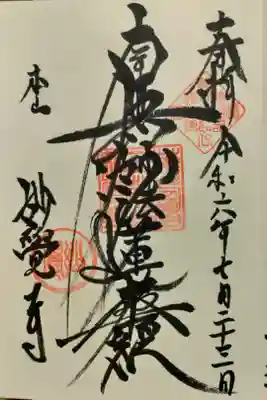 奉拝 令和六年七月二十二日
南無妙法蓮華経
本山
妙覺寺